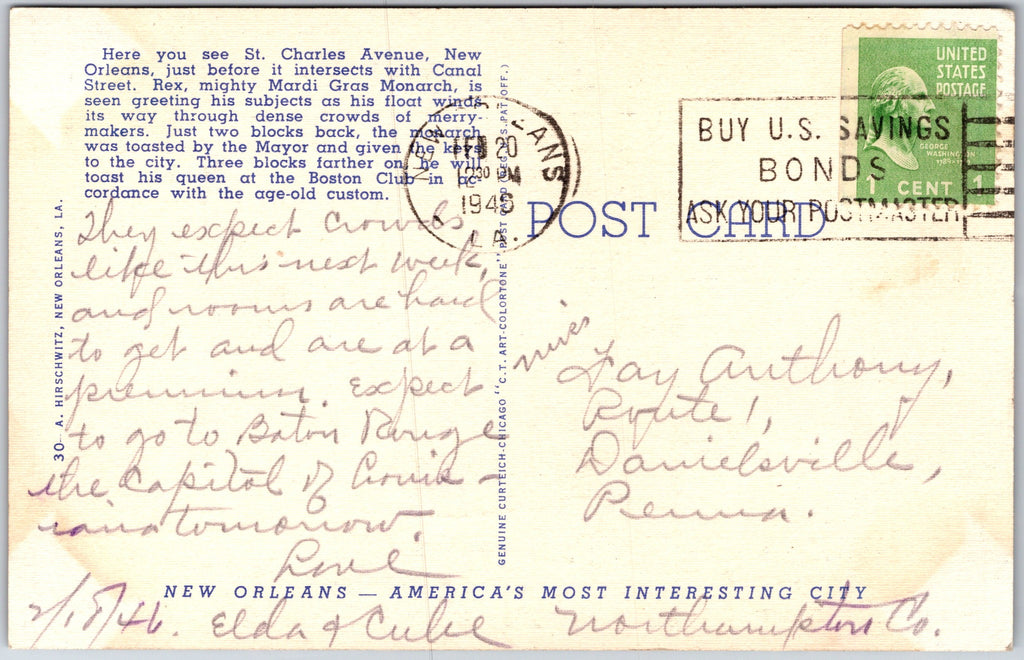 Here you see St. Charles Avenue, New
Orleans, just before it intersects with Canal
Street. Rex, mighty Mardi Gras Monarch, is
seen greeting his subjects as his float winds
its way through dense crowds of merry-
makers. Just two blocks back, the monarch
was toasted by the Mayor and given the keys
to the city. Three blocks farther on he will
toast his queen at the Boston Club in ac-
cordance with the age-old custom.
They expect crowds
like this next week,
and rooms are hard
to get and are at a
premium. Expect
to go to Baton Rouge
the Capitol of Louis-
iana tomorrow.
Love
Elda &
2/18/46.
30—A. HIRSCHWITZ, NEW ORLEANS, LA.
GENUINE CURTEICH-CHICAGO "C.T. ART-COLORTONE" POST CARD (REG. U.S. PAT. OFF.)
NEW ORLEANS
FEB 20
12 30 PM
1946
LA.
BUY U.S. SAVINGS
BONDS
ASK YOUR POSTMASTER
UNITED
STATES
POSTAGE
GEORGE
WASHINGTON
1789-1797
1 CENT 1
POST CARD
Miss
Fay Anthony,
Route 1,
Danielsville,
Penna.
Northampton Co.
NEW ORLEANS — AMERICA'S MOST INTERESTING CITY